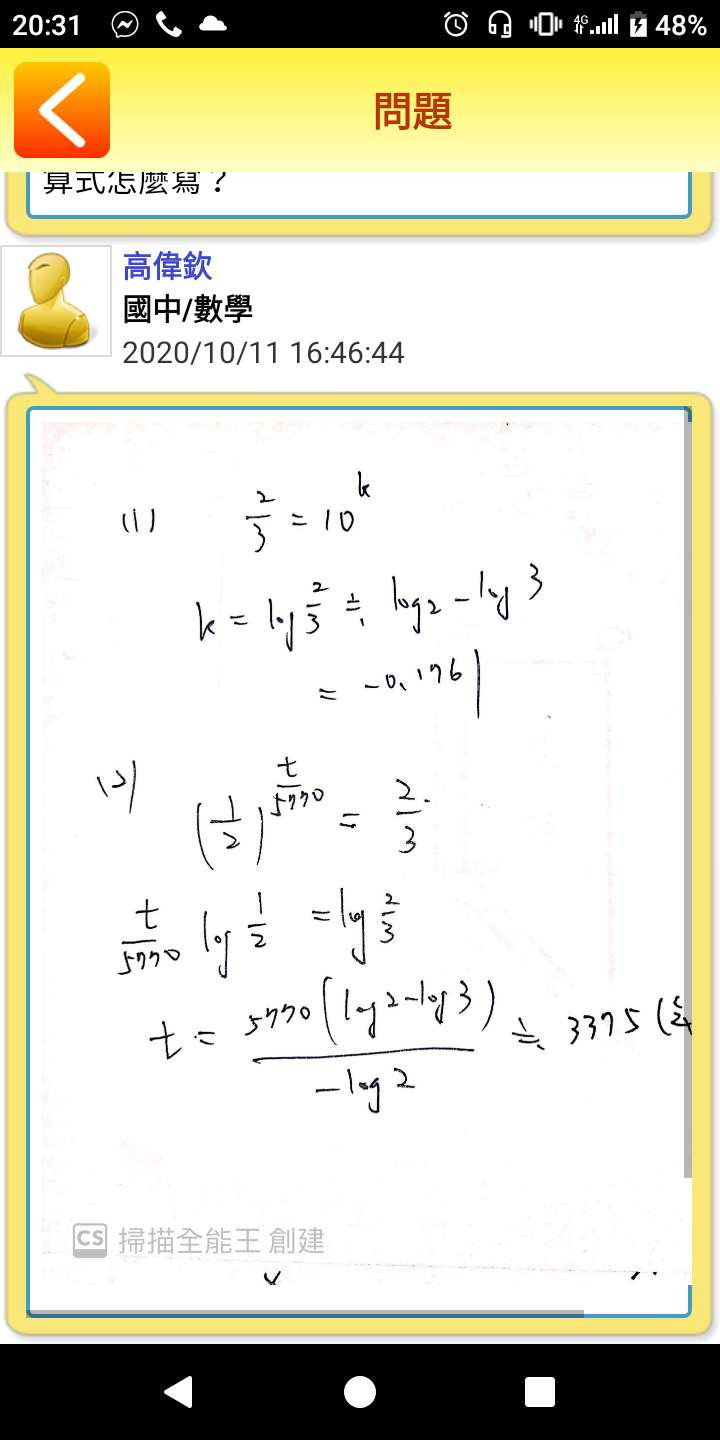 20:31 4G 48%
問題
算式怎麼寫？
高偉欽
國中/數學
2020/10/11 16:46:44
(1) 2/3 = 10^k
k = log 2/3 ≒ log2 - log 3
= -0.1761
(2) (1/2)^(t/5770) = 2/3
t/5770 log 1/2 = log 2/3
t = 5770(log2-log3)/-log2 ≒ 3375
CS 掃描全能王 創建